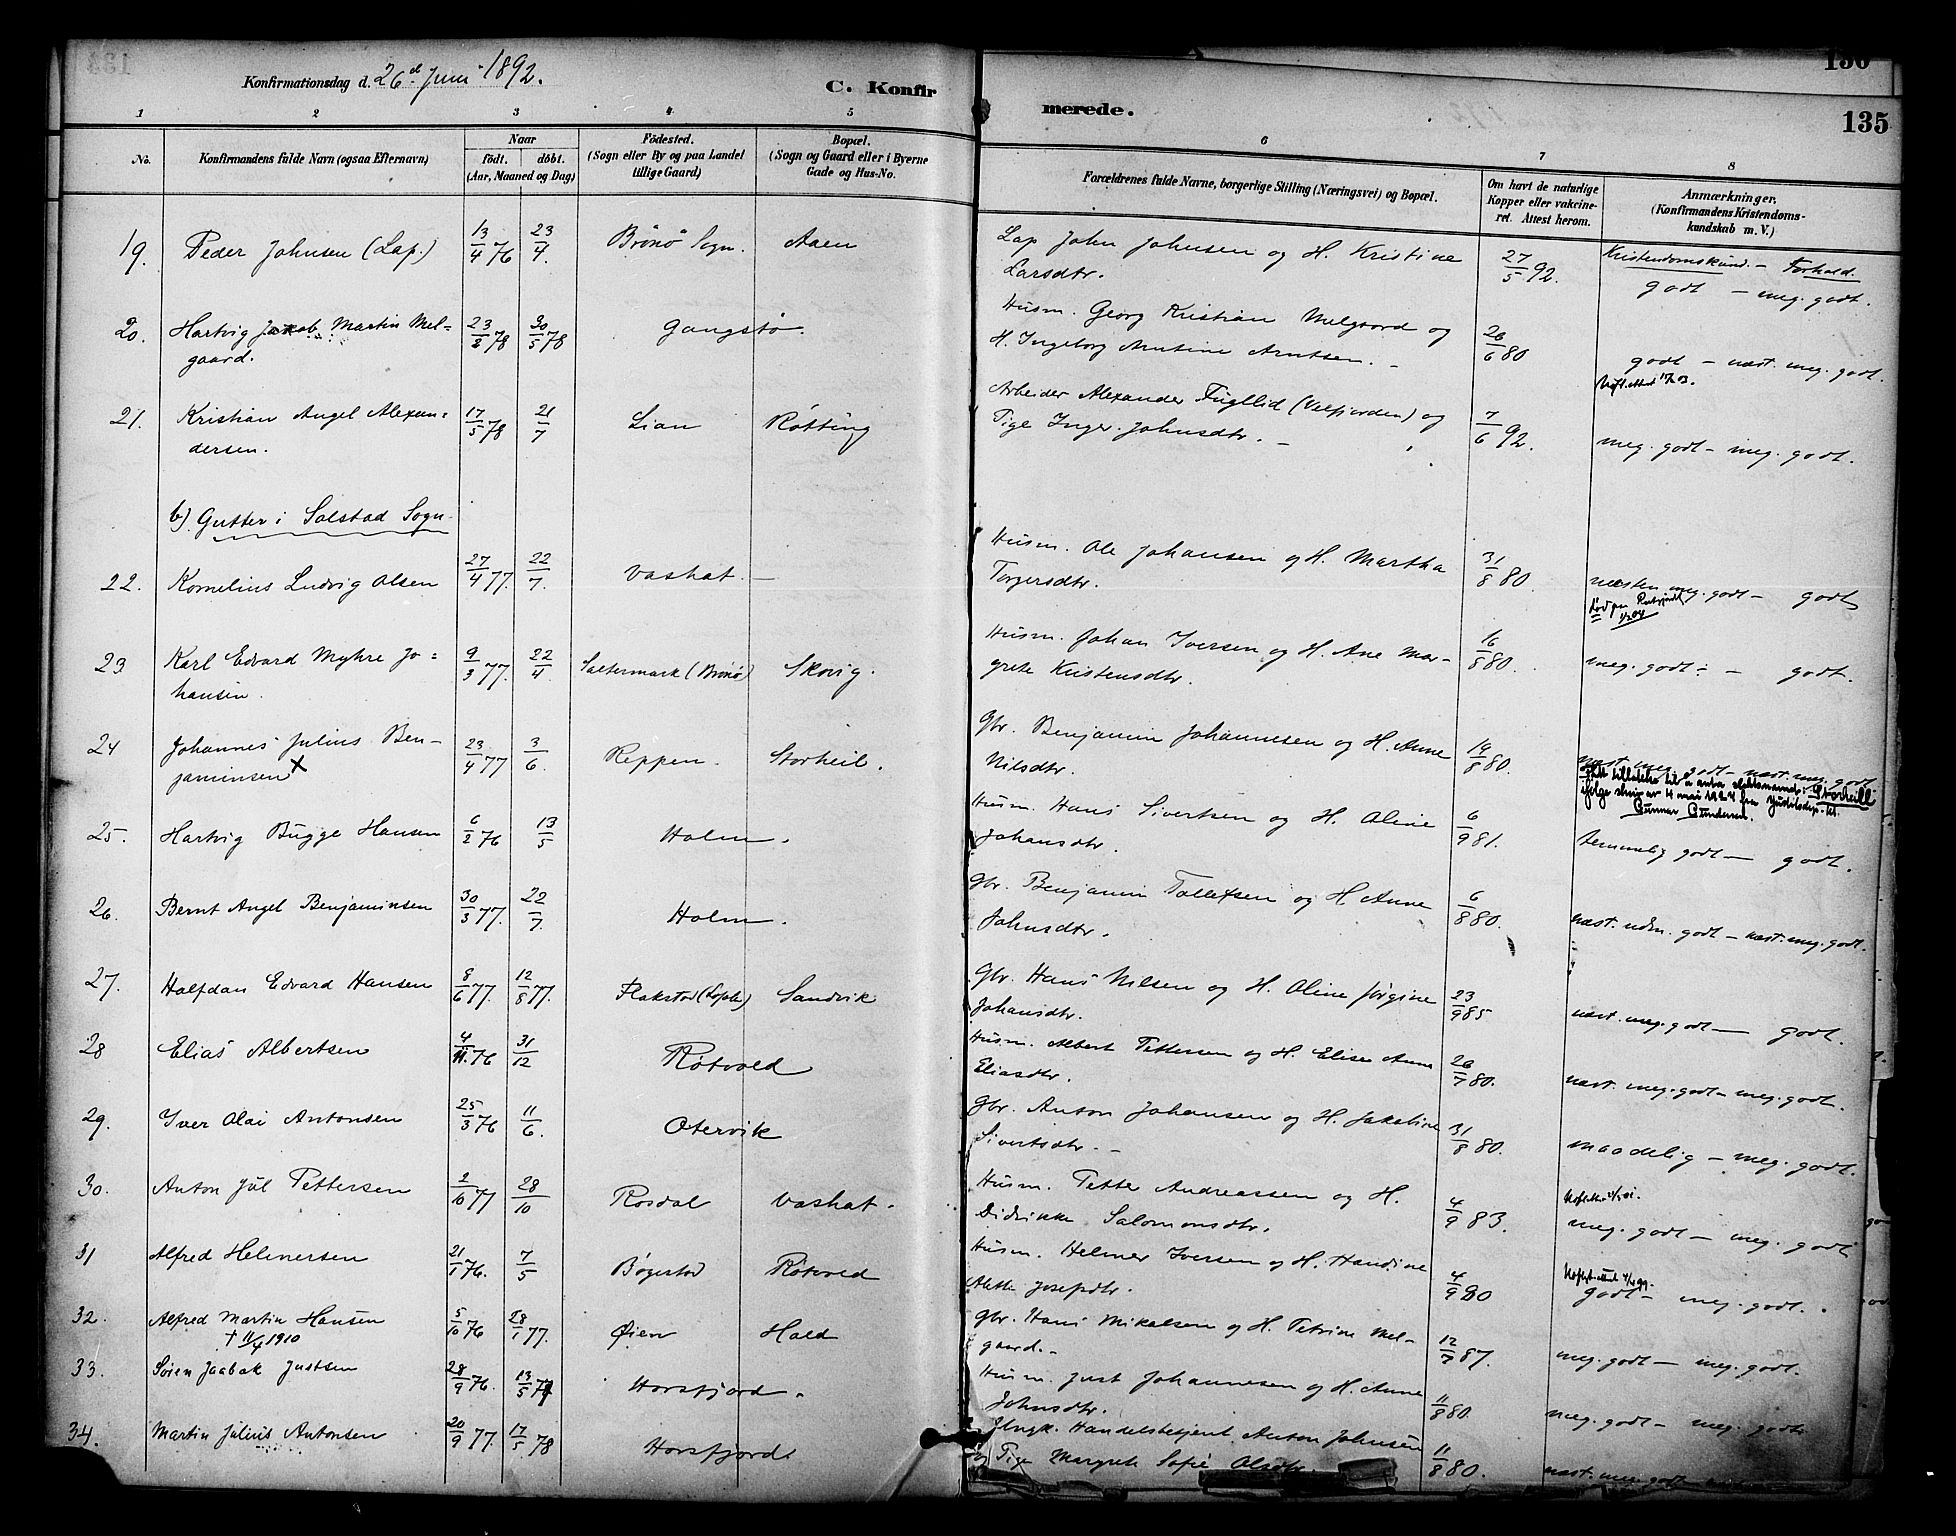 Konfirmationsdag d. 26d Juni 1892.
C. Konfirmerede.
135
1 2 3 4 5 6 7 8
No.
Konfirmandens fulde Navn (ogsaa Efternavn)
Naar
födt. döbt.
(Aar, Maaned og Dag)
Födested.
(Sogn eller By og paa Landet tillige Gaard)
Bopæl.
(Sogn og Gaard eller i Byerne Gade og Hus-No.
Forældrenes fulde Navne, borgerlige Stilling (Næringsvei) og Bopæl.
Om havt de naturlige Kopper eller vakcineret. Attest herom.
Anmærkninger.
(Konfirmandens Kristendomskundskab m. V.)
Kristendomskund. – Forhold.
19. Peder Johnsen (Lap.) 13/4 76 23/4. Brönö Sogn. Aaen Lap John Johnsen og H. Kristine Larsdtr. 27/5 92. godt – meg. godt.
20. Hartvig Jakob Martin Melgaard. 23/2 78 30/5 78 Gangstø. Husm. Georg Kristian Melgaard og H. Ingeborg Arntine Arntsen. – 26/6 80 godt – næst. meg. godt.
21. Kristian Angel Alexandersen. 17/5 78 21/7 Lian Røtting Arbeider Alexander Fugllid (Velfjorden) og Pige Inger Johnsdtr. – 7/6 92. meg. godt – meg. godt.
b) Gutter i Solstad Sogn.
22. Kornelius Ludvig Olsen 27/4 77. 22/7. Vashat. – Husm. Ole Johansen og H. Martha Torgersdtr. 31/8 80 næsten meg. godt – godt
23 Karl Edvard Myhre Johansen. 9/3 77. 22/4 Saltermark (Brönö) Skovig. Husm. Johan Iversen og H. Ane Margrete Kristensdtr. 16/8 80. meg. godt – godt.
24 Johannes Julius Benjaminsen X 23/4 77 3/6. Reppen. Storheil. Gbr. Benjamin Johannesen og H. Anne Nilsdtr. 19/8 80. næst. meg. godt – næst. meg. godt
Fått tillatelse til å anta slektsnavnet: Storheill ifølge skriv av 4 mai 1924 fra Justisdep. til Gunnar Gundersen.
25. Hartvig Bugge Hansen 6/2 76 13/5 Holm. Husm. Hans Sivertsen og H. Oline Johansdtr. 6/9 81. temmelig godt – godt.
26. Bernt Angel Benjaminsen 30/3 77. 22/7. Holm. Gbr. Benjamin Tollefsen og H. Anne Johnsdtr. 6/8 80. næst. udm. godt – næst. meg. godt.
27. Halfdan Edvard Hansen 8/6 77. 12/8 77. Flakstad (Lofoten) Sandvik Gbr. Hans Nilsen og H. Oline Jörgine Johansdtr. 23/9 85 næst. meg. godt – godt.
28 Elias Albertsen 4/11. 76 31/12 Røtvold Husm. Albert Pettersen og H. Elise Anne Eliasdtr. 26/7 80. næst. meg. godt – meg. godt.
29. Iver Olai Antonsen 25/3 76 11/6. Otervik Gbr. Anton Johansen og H. Jakobine Sivertsdtr. – 31/8 80. maadelig – meg. godt.
30. Anton Jul Pettersen 2/10 77 28/10 Rosdal Vashat. Husm. Petter Andreassen og H. Didrikke Salomonsdtr. 4/9 83. meg. godt – meg. godt
31 Alfred Helmersen 21/1 76. 7/5 Bøgestad Røtvold Husm. Helmer Iversen og H. Handine Aleth. Josefsdtr. 4/9 80 godt – meg. godt.
32. Alfred Martin Hansen † 11/4 1910 5/10 76 28/1 77. Øien Hald Gbr. Hans Mikalsen og H. Petrine Melgaard. – 12/7 87. meg. godt – meg. godt.
33. Sören Jaabæk Justsen 28/9 76. 13/5 77 Horsfjord. Husm. Just Johannesen og H. Anne Johnsdtr. 11/8 80. meg. godt – meg. godt
34. Martin Julius Antonsen 20/9 77. 17/5 78 Horsfjord Ungk. Handelsbetjent Anton Johnsen og Pige Margreth Sofie Olsdtr. 11/8 80. næst. meg. godt